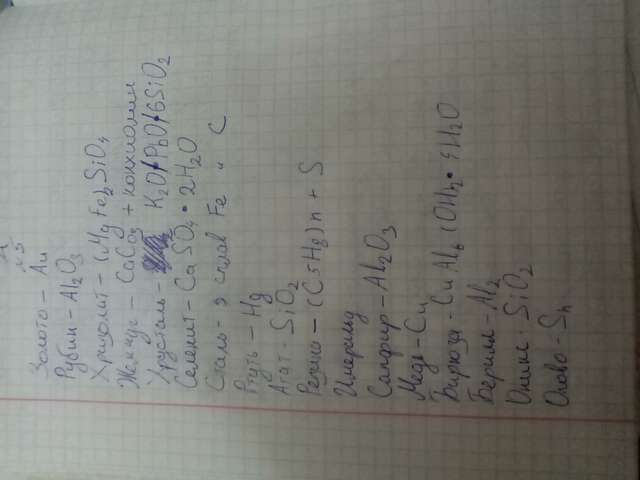 Золото - Au
Рубин - Al2O3
Хризолит - (Mg Fe)2 SiO4
Жемчуг - CaCO3 + конхиолин
Хрусталь - K2O PbO 6SiO2
Селенит - CaSO4 • 2H2O
Сталь - э сплав Fe и C
Ртуть - Hg
Агат - SiO2
Резина - (C5H8)n + S
Сапфир - Al2O3
Медь - Cu
Бирюза - CuAl6 (OH)2 • 4H2O
Берилл - Al2
Оникс - SiO2
Олово - Sn